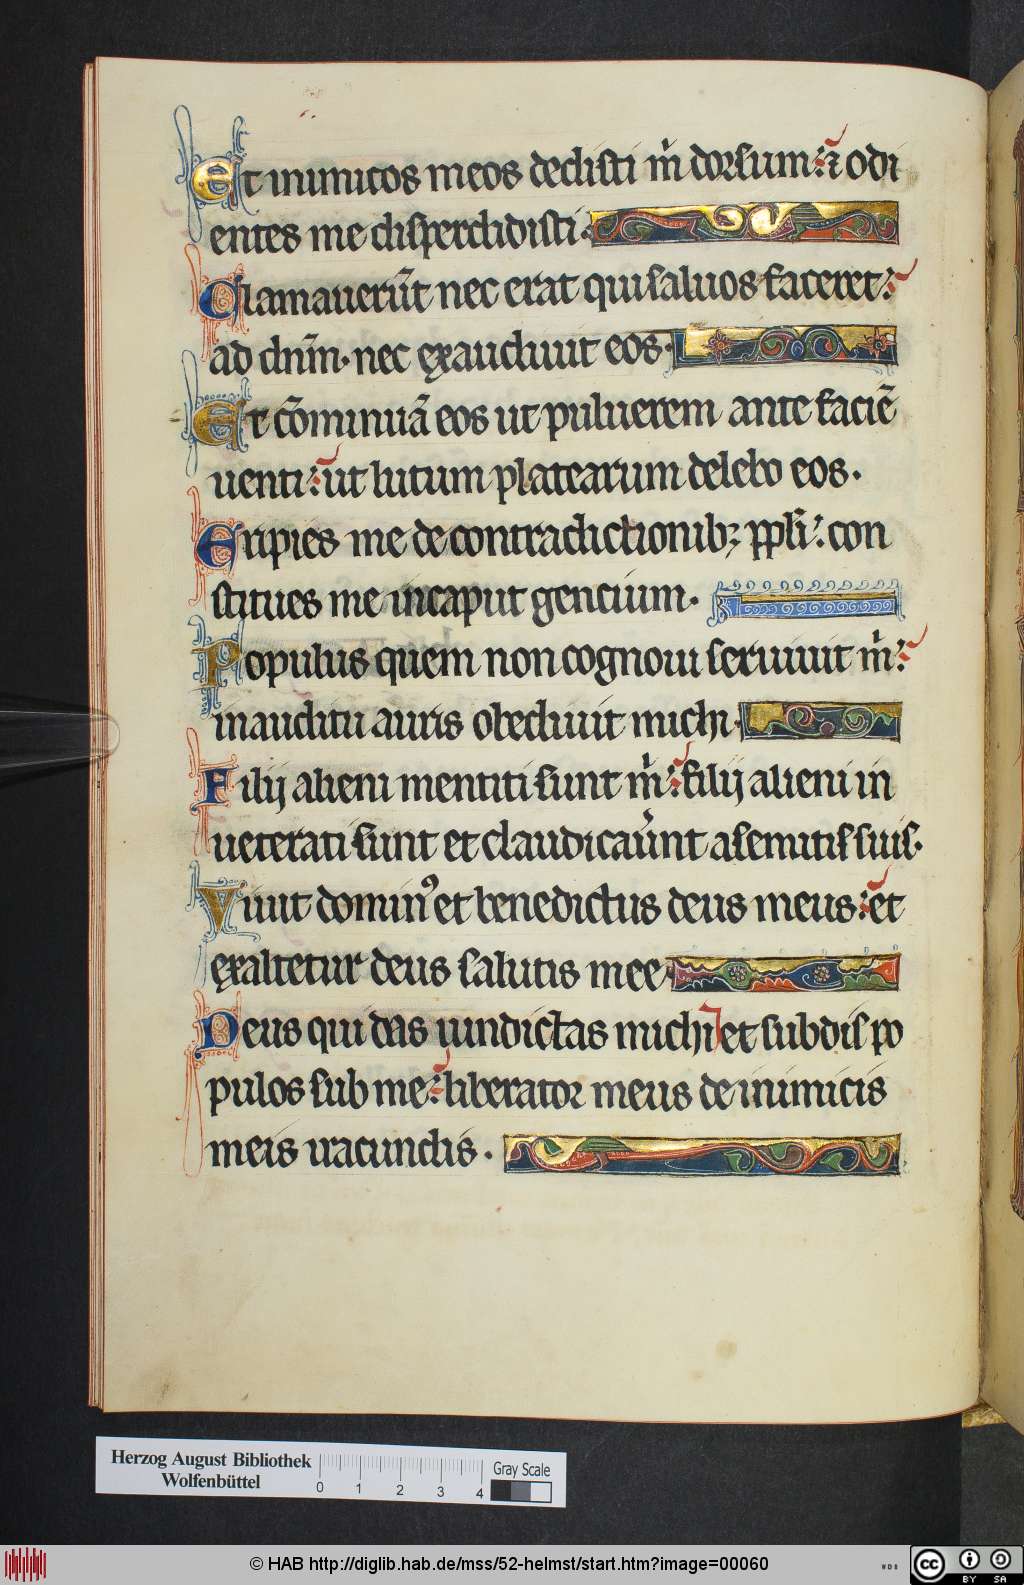 Et inimicos meos dedisti m̉ dorsum: ⁊ odi
entes me disperdidisti.
Clamauerūt nec erat qui saluos faceret:
ad dn̄m. nec exaudiuit eos.
Et cōminuā eos ut puluerem ante faciē
uenti: ut lutum platearum delebo eos.
Eripies me de contradictionibꝫ ppl̓i: con
stitues me in caput gencium.
Populus quem non cognoui seruiuit m̉:
in auditu auris obediuit michi.
Filij alieni mentiti sunt m̉: filij alieni in
ueterati sunt et claudicaūnt a semitis suis.
Viuit dominꝰ et benedictus deus meus: et
exaltetur deus salutis mee.
Deus qui das uindictas michi et subdis po
pulos sub me: liberator meus de inimicis
meis iracundis.
Herzog August Bibliothek
Wolfenbüttel
0 1 2 3 4
Gray Scale
© HAB http://diglib.hab.de/mss/52-helmst/start.htm?image=00060
WDB
cc BY SA